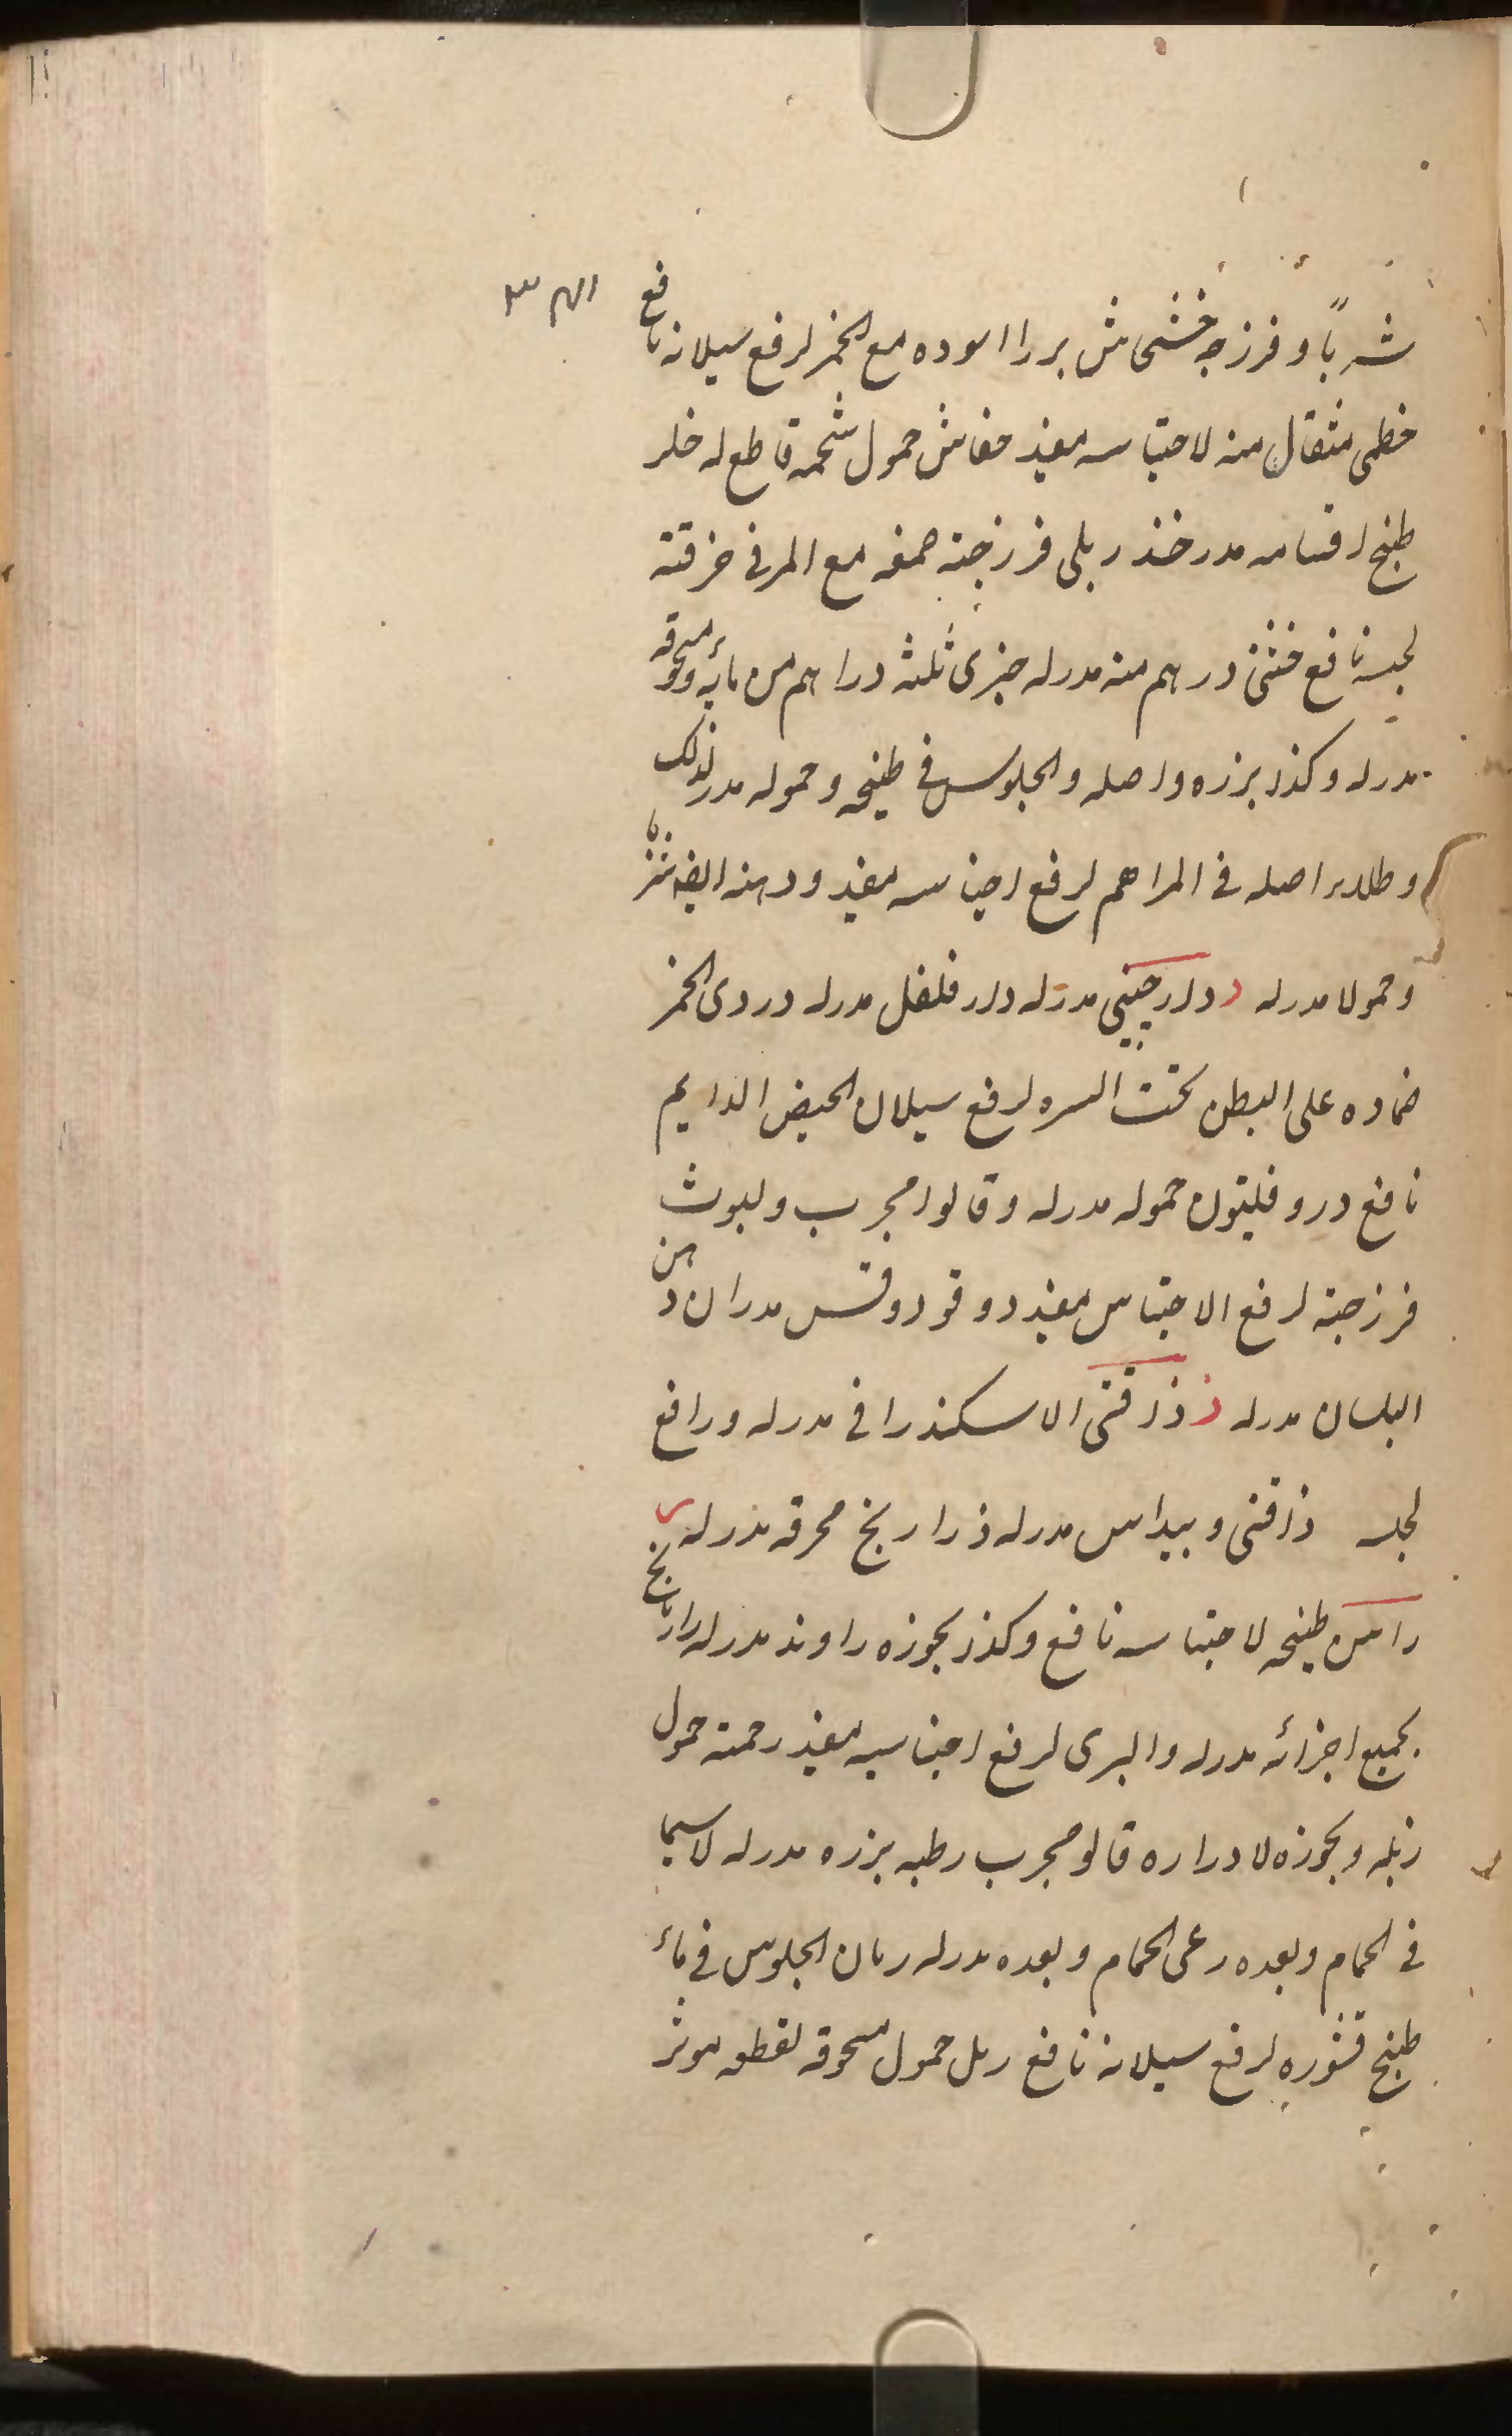 شرباً وفرزجة خشخاش بزر اسوده مع الخمر لرفع سيلانه نافع
خطمى مثقال منه لاحتباسه مفيد خفاش حمول شحمه قاطع له خلر
طبخ اقسامه مدر خندريلى فرزجته صمغه مع المر فى خرقته
لحبسه نافع خنثى درهم منه مدر له خيرى ثلثة دراهم من مائه ومسحوقه
مدر له وكذا بزره واصله والجلوس فى طبيخه وحموله مدر لذلك
وطلاء اصله فى المراهم لرفع احتباسه مفيد ودهنه ايضا شربا
وحمولا مدر له د دارچينى مدر له دار فلفل مدر له دردى الخمر
ضماده على البطن تحت السره لرفع سيلان الحيض الدايم
نافع دروفليتون حموله مدر له وقالوا مجرب ولبوث
فرزجته لرفع الاحتباس مفيد دوقو دوقس مدران دهن
البلسان مدر له ذ ذاقنى الاسكندرانى مدر له ورافع
لحبسه ذاقنى وبيداس مدر له ذراريخ محرقه مدر له ر
راسن طبيخه لاحتباسه نافع وكذا بخوره راوند مدر له رازيانج
بجميع اجزائه مدر له والبرى لرفع احتباسه مفيد رخمة حمول
زبله وبخوره لادراره قالو مجرب رطبه بزره مدر له لاسيما
فى الحمام وبعده رعى الحمام وبعده مدر له رمان الجلوس فى ماء
طبخ قشوره لرفع سيلانه نافع رمل حمول مسحوقه لقطعه موثر